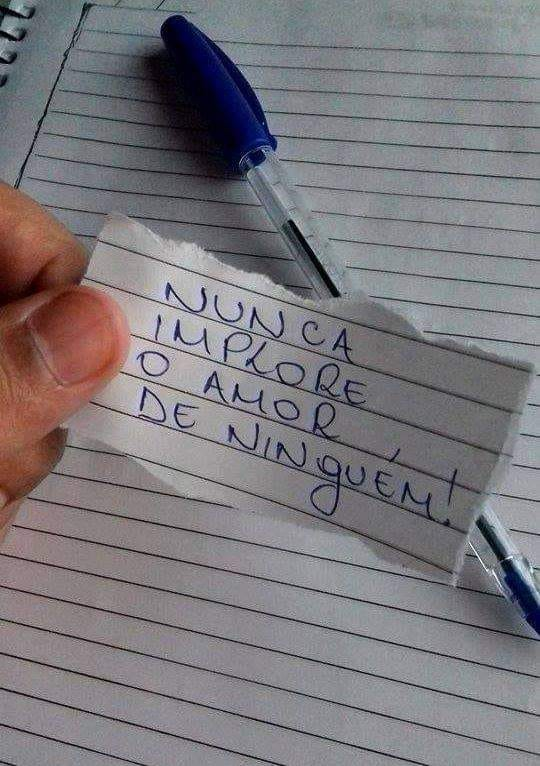 NUNCA
IMPLORE
O AMOR
DE NINGUÉM!